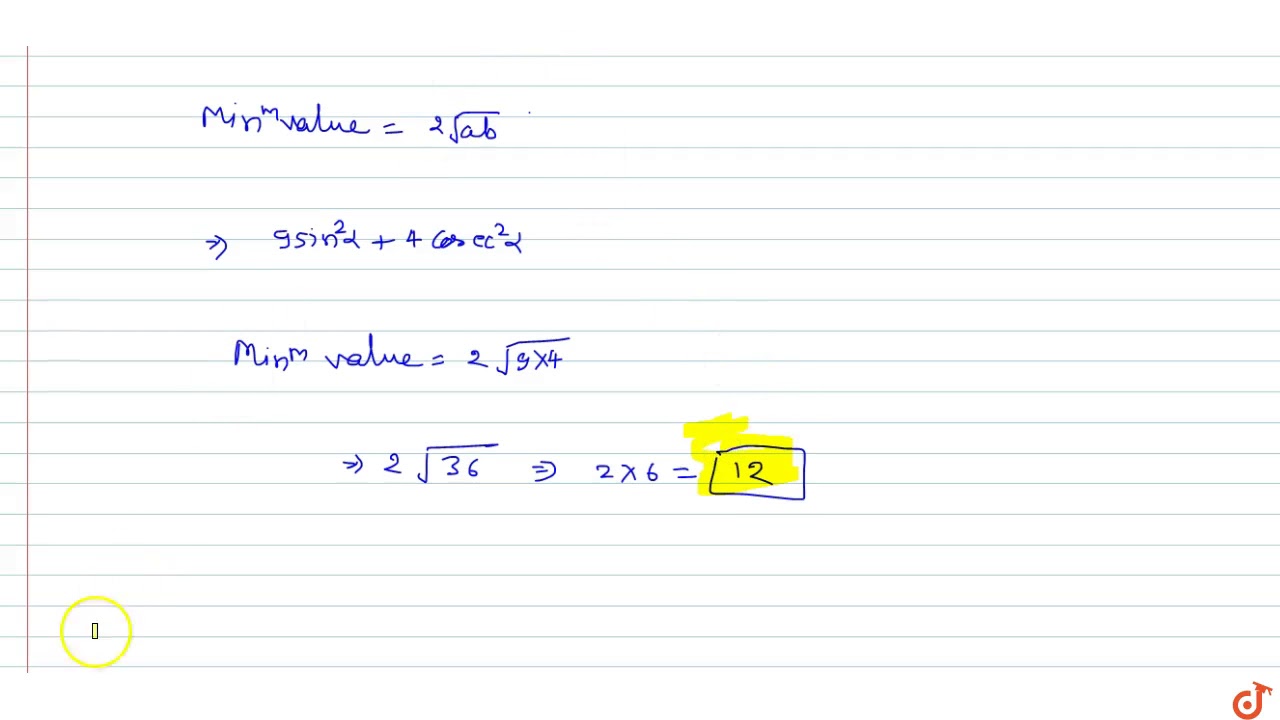 Minᵐ value = 2√ab
⇒ 9sin²α + 4 cosec²α
Minᵐ value = 2 √9×4
⇒ 2 √36 ⇒ 2×6 = 12